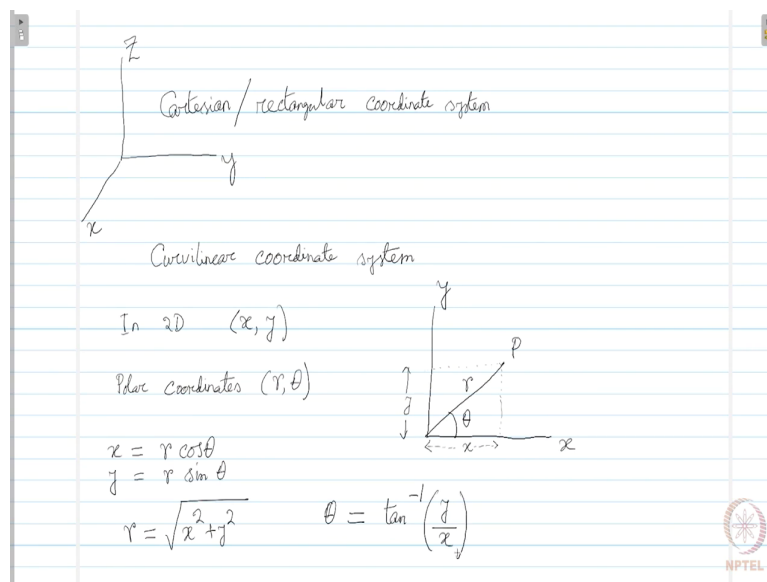 Z
Cartesian/rectangular coordinate system
y
x
Curvilinear coordinate system
y
In 2D (x, y)
P
Polar coordinates (r, θ)
r
y
θ
x
x
x = r cosθ
y = r sin θ
r = √x²+y² θ = tan⁻¹(y/x)
NPTEL